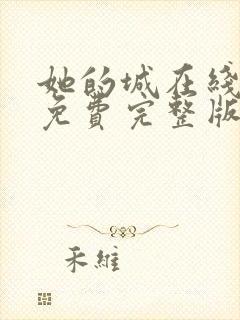 她的城在綫
免費完整版
禾維